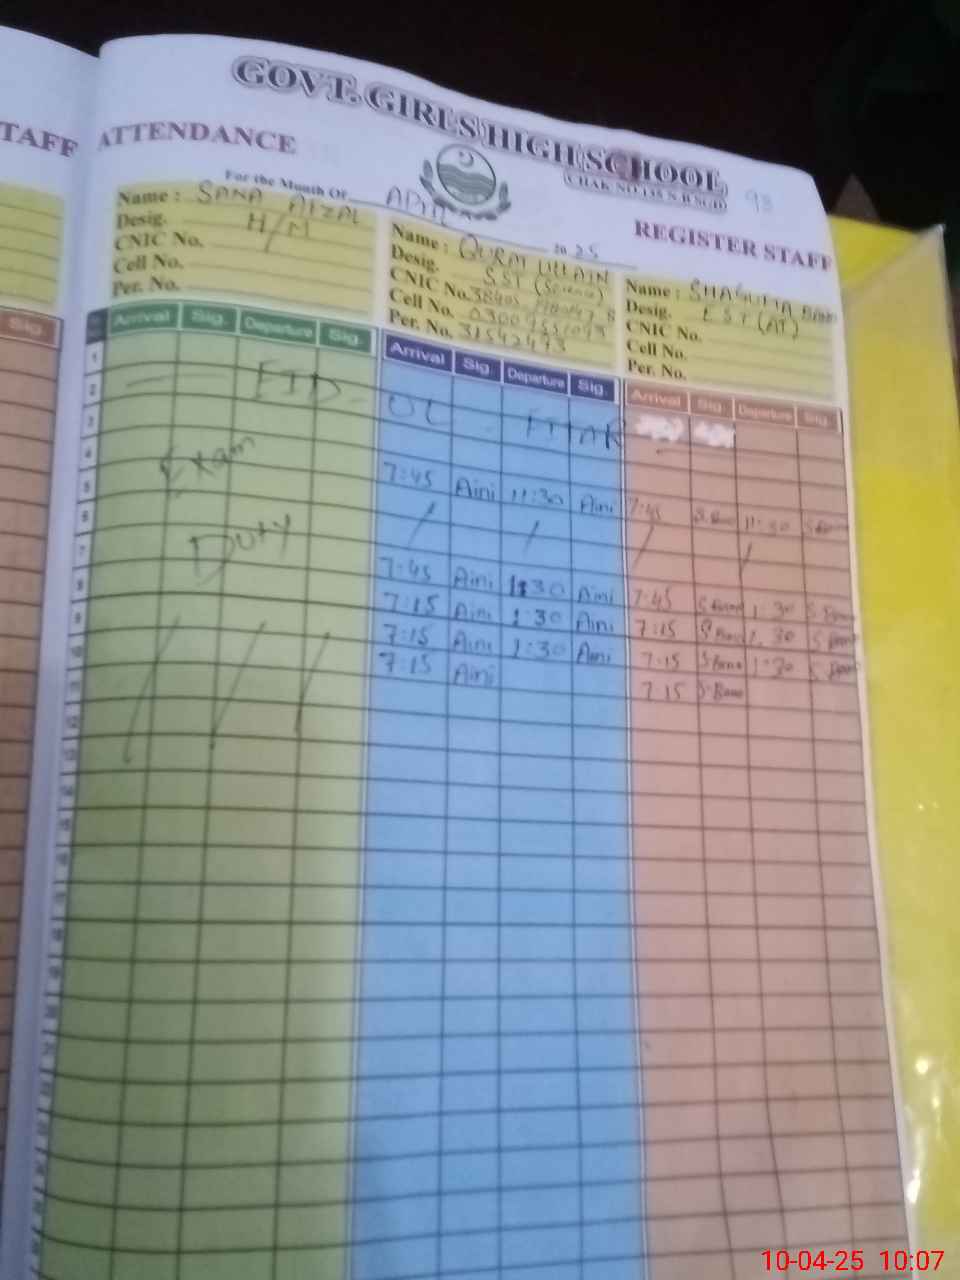 GOVT. GIRLS HIGH SCHOOL
CHAK NO.
93
TAFF
ATTENDANCE
REGISTER STAFF
For the Month Of APRIL 2025
Name : SANA AFZAL
Desig. H/M
CNIC No.
Cell No.
Per. No.
Name : QURAT ULLAIN
Desig. SST (Science)
CNIC No.
Cell No.
Per. No. 31542493
Name : SHAGUFTA BANO
Desig. EST (AT)
CNIC No.
Cell No.
Per. No.
Sig.
Arrival Sig. Departure Sig.
Arrival Sig. Departure Sig.
Arrival Sig. Departure Sig.
Exam
Duty
UL FITAR
7:45 Aini 11:30 Aini 7:45 11:30
7:45 Aini 1:30 Aini 7:45 1:30
7:15 Aini 1:30 Aini 7:15 S Bano 1:30
7:15 Aini 1:30 Aini 7:15 S Bano 1:30
7:15 Aini 7:15 S Bano
1
2
3
4
5
6
7
8
9
10
11
12
13
14
15
10-04-25 10:07